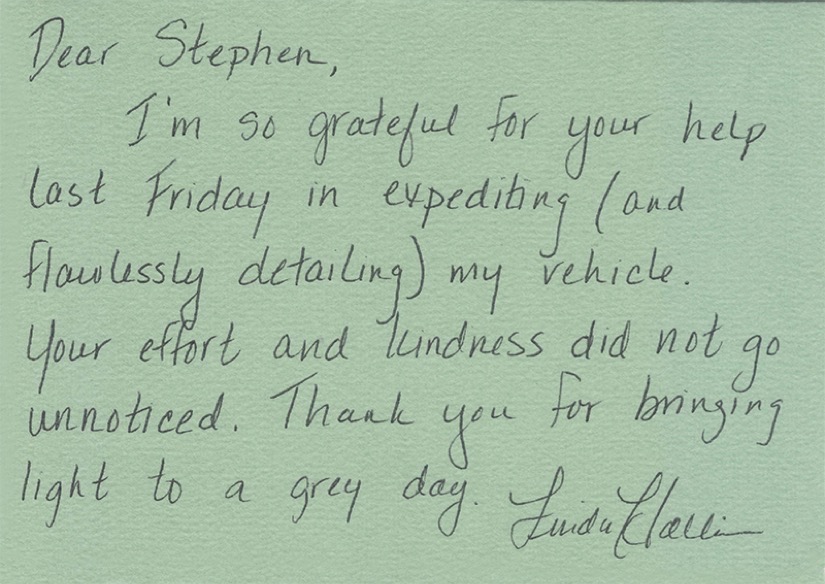 Dear Stephen,
I'm so grateful for your help
last Friday in expediting (and
flawlessly detailing) my vehicle.
Your effort and kindness did not go
unnoticed. Thank you for bringing
light to a grey day. Linda